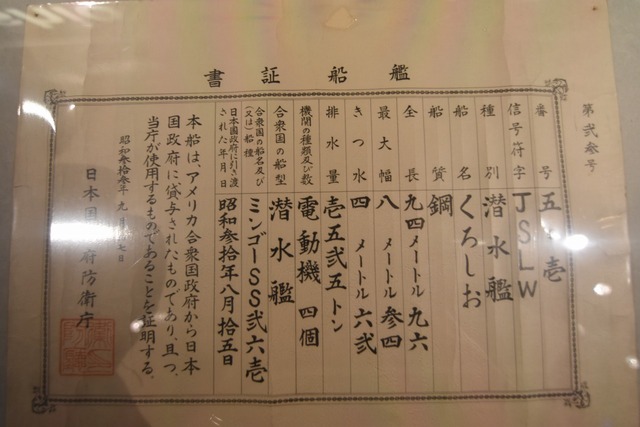 艦船証書
第弐参号
番号 五〇壱
信号符字 JSLW
種別 潜水艦
船名 くろしお
船質 鋼
全長 九四メートル九六
最大幅 八メートル参四
きつ水 四メートル六弐
排水量 壱五弐五トン
機関の種類及び数 電動機 四個
合衆国の船型 潜水艦
合衆国の船名及び(又は)船種 ミンゴーSS弐六壱
日本国政府に引き渡された年月日 昭和参拾年八月拾五日
本船は、アメリカ合衆国政府から日本
国政府に貸与されたものであり、且つ、
当庁が使用するものであることを証明する。
昭和参拾参年九月 七日
日本国政府防衛庁